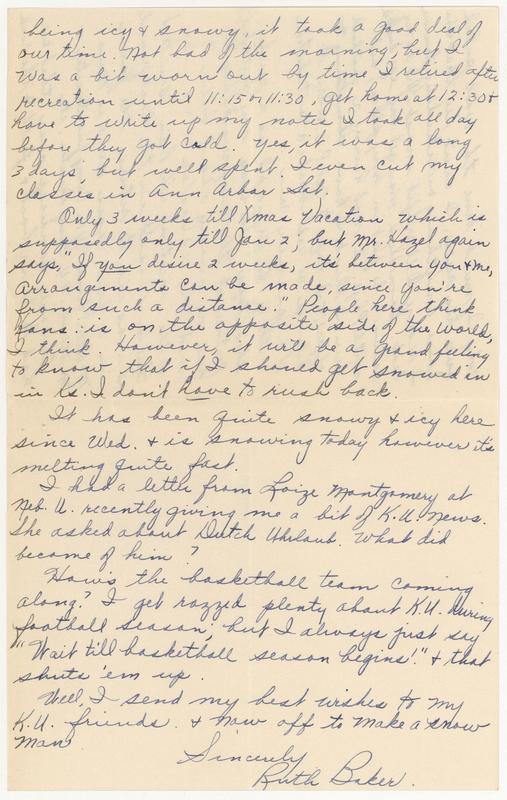 being icy & snowy, it took a good deal of
our time. Not bad of the morning, but I
was a bit worn out by time I retired after
recreation until 11:15 or 11:30, get home at 12:30 &
have to write up my notes I took all day
before they got cold. Yes, it was a long
3 days, but well spent. I even cut my
classes in Ann Arbor Sat.
Only 3 weeks till Xmas Vacation which is
supposedly only till Jan 2; but Mr. Hazel again
says, "If you desire 2 weeks, it's between you & me,
arrangements can be made, since you're
from such a distance." People here think
Kans. is on the opposite side of the world,
I think. However, it will be a grand feeling
to know that if I should get snowed in
in Ks. I don't have to rush back.
It has been quite snowy & icy here
since Wed. & is snowing today however it's
melting quite fast.
I had a letter from Loize Montgomery at
Neb. U. recently giving me a bit of K.U. news.
She asked about Dutch Uhrlaub. What did
become of him?
How's the basketball team coming
along? I get razzed plenty about K.U. during
football season, but I always just say
"Wait till basketball season begins!" & that
shuts 'em up.
Well, I send my best wishes to my
K.U. friends. & now off to make a snow
man.
Sincerely
Ruth Baker.